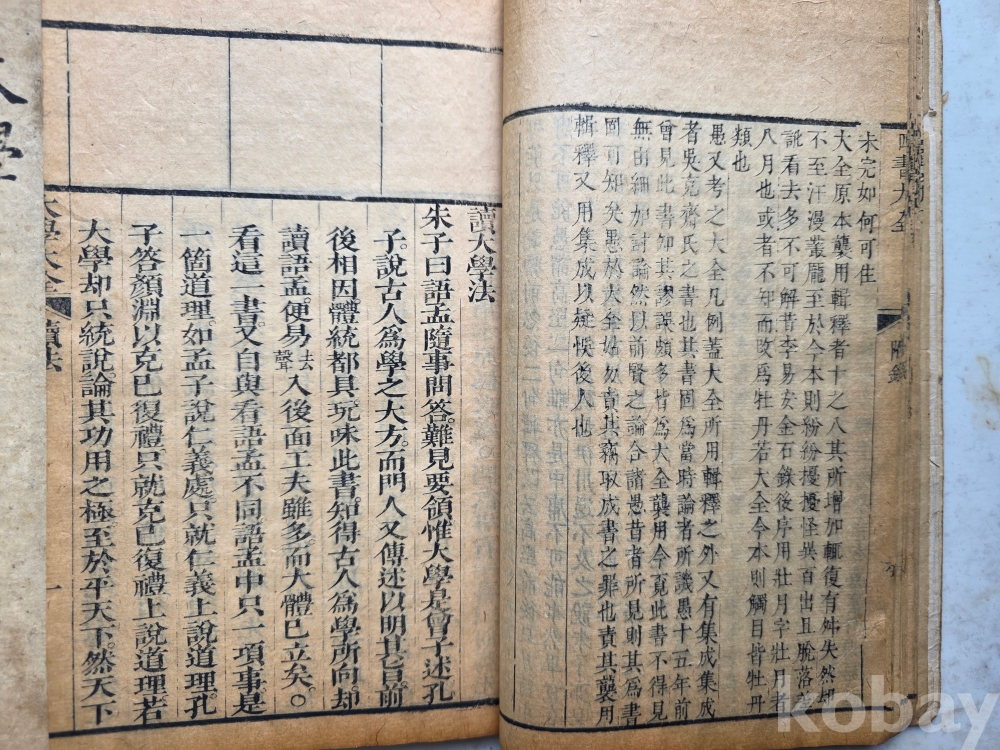 未完如何可生
大全原本襲用輯釋者十之八其所增加輒復有舛失然却
不至汗漫叢厖至於今本則紛紛擾擾怪異百出且脫落差
訛看去多不可解昔李易安金石錄後序用壯月字壯月者
八月也或者不知而改爲牡丹若大全今本則觸目皆牡丹
類也
愚又考之大全凡例蓋大全所用輯釋之外又有集成集成
者吳克齋氏之書也其書固爲當時論者所譏愚十五年前
曾見此書如其謬誤頗多皆爲大全龔用今覓此書不得見
無由細加討論然以前賢之論合諸愚昔者所見則其爲書
固可知矣愚於大全姑勿責其竊取成書之罪也責其龔用
輯釋又用集成以疑悞後人也
四書大全
附錄
讀大學法
朱子曰語孟隨事問答難見要領惟大學是曾子述孔
子說古人爲學之大方而門人又傳述以明其旨前
後相因體統都具玩味此書知得古人爲學所向却
讀語孟便易去聲入後面工夫雖多而大體已立矣
看這一書又自與看語孟不同語孟中只一項事是
一箇道理如孟子說仁義處只就仁義上說道理孔
子答顏淵以克己復禮只就克己復禮上說道理若
大學却只統說論其功用之極至於平天下然天下
大學大全
讀法
一
大學
kobay